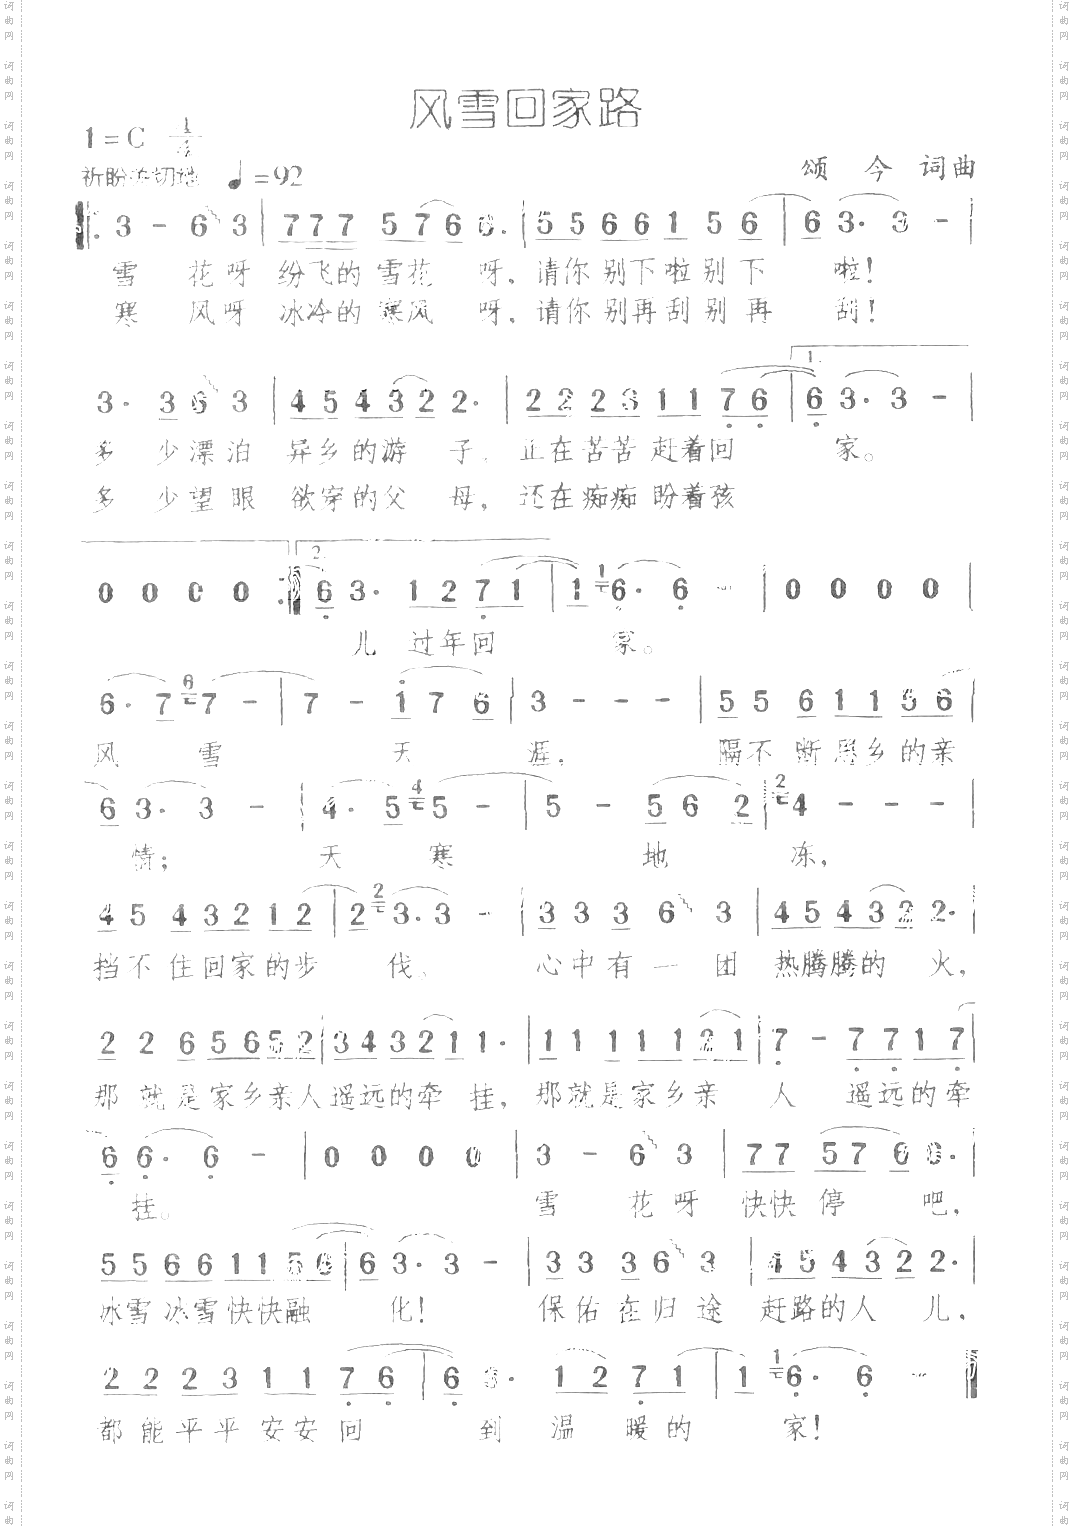 风雪回家路
1=C
祈盼 ♩=92
颂 今 词曲
3 - 6 3 | 777 5 76 6. | 5566 1 5 6 | 6 3. 3 - |
雪 花呀 纷飞的 雪花 呀，请你别下啦别下 啦！
寒 风呀 冰冷的 寒风 呀，请你别再刮别再 刮！
1.
3. 3 6 3 | 454322. | 2223 11 76 | 6 3. 3 - |
多 少漂泊 异乡的游 子，正在苦苦 赶着回 家。
多 少望眼 欲穿的父 母，还在痴痴 盼着孩
2.
0 0 0 0 :| 6 3. 12 71 | 1 1 6. 6 - | 0 0 0 0 |
儿 过年回 家。
6. 7 6 7 - | 7 - 1 7 6 | 3 - - - | 55 6 11 56 |
风 雪 天 涯， 隔不 断思乡的亲
6 3. 3 - | 4. 5 4 5 - | 5 - 5 6 2 | 2 4 - - - |
情； 天 寒 地 冻，
45 43212 | 2 2 3. 3 - | 3 3 3 6 3 | 454322. |
挡不 住回家的步 伐， 心中有一团 热腾腾的 火，
2 2 6 5652 | 343211. | 11 111 21 | 7 - 7 7 1 7 |
那 就是家乡亲人遥远的牵 挂，那就是家乡亲 人 遥远的牵
6 6. 6 - | 0 0 0 0 | 3 - 6 3 | 77 57 6 6. |
挂。 雪 花呀 快快 停 吧，
5566 1156 | 6 3. 3 - | 33 36 3 | 454322. |
冰雪冰雪快快融 化！ 保佑在归途 赶路的人 儿，
2223 11 76 | 6 3. 12 71 | 1 1 6. 6 - |
都能平平安安回 到 温 暖的 家！
词曲网